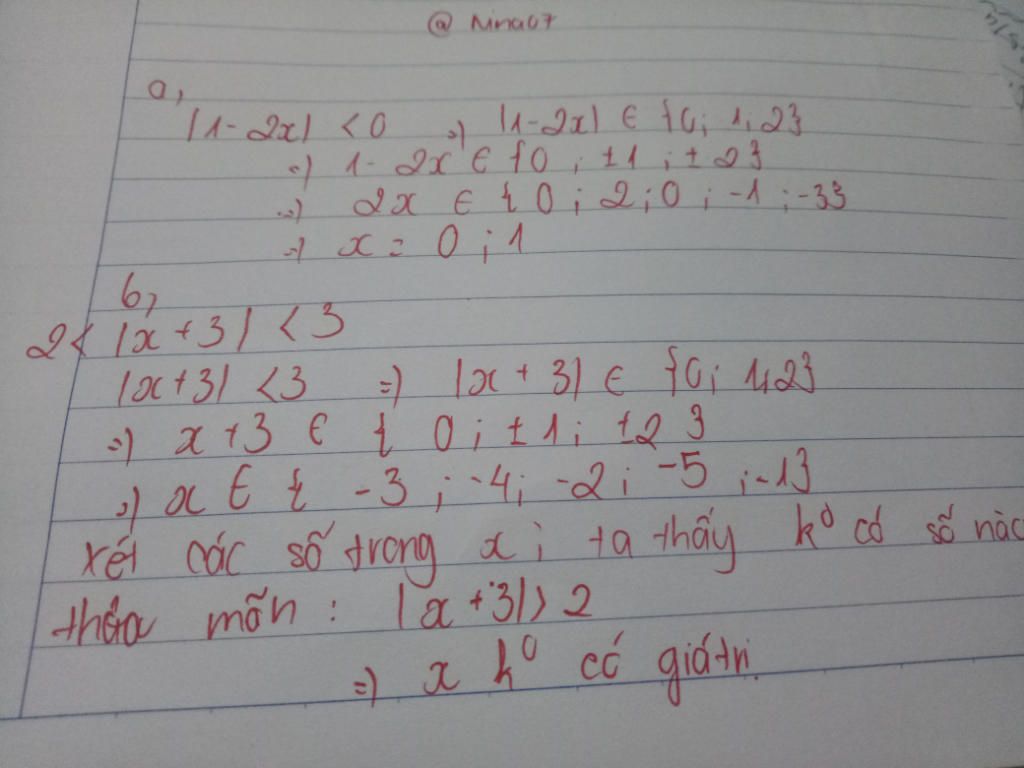 @ Nina07
a,
|1-2x| < 0 => |1-2x| ∈ {0; 1; 2}
=> 1-2x ∈ {0; ±1; ±2}
=> 2x ∈ {0; 2; 0; -1; -3}
=> x = 0; 1
b,
2 < |x+3| < 3
|x+3| < 3 => |x+3| ∈ {0; 1; 2}
=> x+3 ∈ {0; ±1; ±2}
=> x ∈ {-3; -4; -2; -5; -1}
xét các số trong x; ta thấy k⁰ có số nào
thỏa mãn: |x+3| > 2
=> x k⁰ có giá trị.